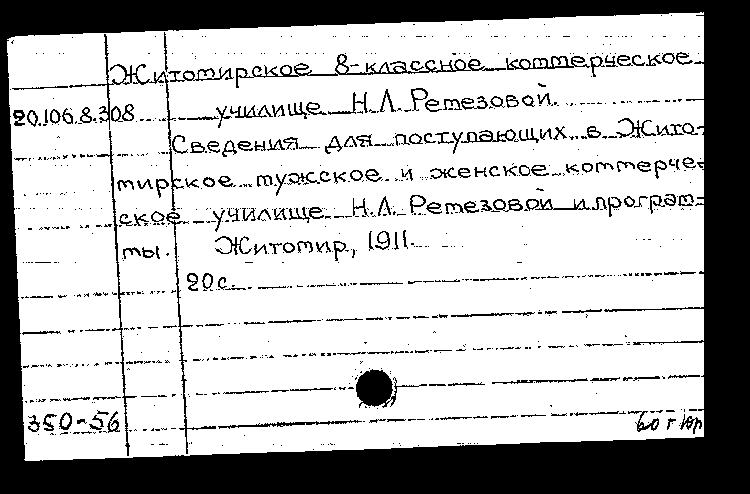 Житомирское 8-классное коммерческое
20.106.8.308 училище Н.Л. Ремезовой.
Сведения для поступающих в Жито-
мирское мужское и женское коммерче-
ское училище Н.Л. Ремезовой и програм-
мы. Житомир, 1911.
20 с.
350-56
60 г